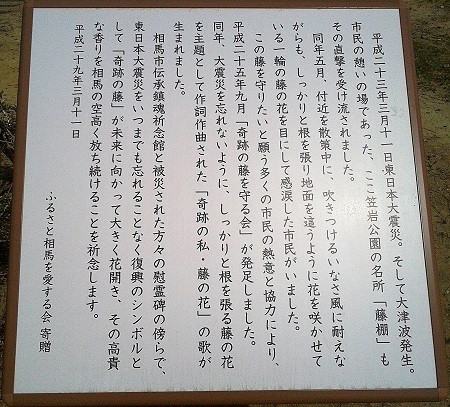 平成二十三年三月十一日東日本大震災。そして大津波発生。
市民の憩いの場であった、ここ笠岩公園の名所「藤棚」も
その直撃を受け流されました。
同年五月、付近を散策中に、吹きつけるいなさ風に耐えな
がらも、しっかりと根を張り地面を這うように花を咲かせて
いる一輪の藤の花を目にして感涙した市民がいました。
この藤を守りたいと願う多くの市民の熱意と協力により、
平成二十五年九月「奇跡の藤を守る会」が発足しました。
同年、大震災を忘れないように、しっかりと根を張る藤の花
を主題として作詞作曲された「奇跡の私・藤の花」の歌が
生まれました。
相馬市伝承鎮魂祈念館と被災された方々の慰霊碑の傍らで、
東日本大震災をいつまでも忘れることなく復興のシンボルと
して「奇跡の藤」が未来に向かって大きく花開き、その高貴
な香りを相馬の空高く放ち続けることを祈念します。
平成二十九年三月十一日
ふるさと相馬を愛する会 寄贈